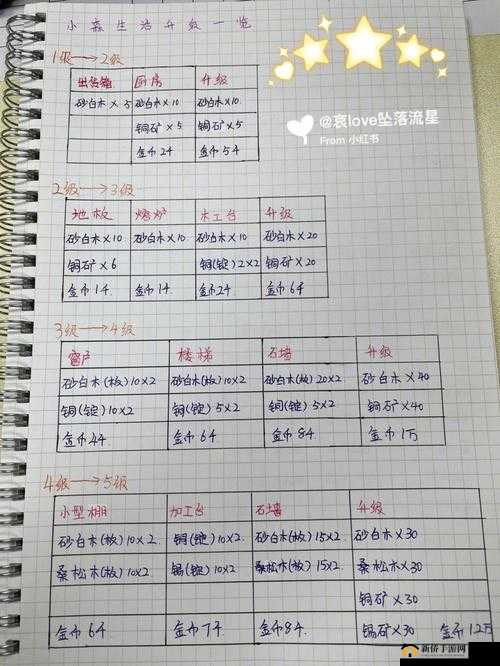 小森生活升级一览
@哀love坠落流星
From 小红书
1级→2级
出货箱 厨房 升级
砂白木×5 砂白木×10 砂白木×10
铜矿×5 铜矿×5
金币24 金币54
2级→3级
地板 烤炉 木工台 升级
砂白木×10 砂白木×10 砂白木×10 砂白木×20
铜矿×6 铜(锭)2×2 铜矿×20
金币14 金币14 金币24 金币64
3级→4级
窗户 楼梯 石墙 升级
砂白木(板)10×2 砂白木(板)10×2 砂白木(板)20×2 砂白木×40
铜(锭)10×2 铜(锭)5×2 铜(锭)5×2 铜矿×40
金币44 金币64 金币84 金币1万
4级→5级
小型棚 加工台 石墙 升级
砂白木(板)10×2 铜(锭)10×2 砂白木(板)15×2 砂白木×30
桑松木(板)10×2 锡(锭)10×2 桑松木(板)15×2 桑松木×30
铜矿×30
金币64 金币74 金币84 锡矿×30 金币1.2万
新侨手游网